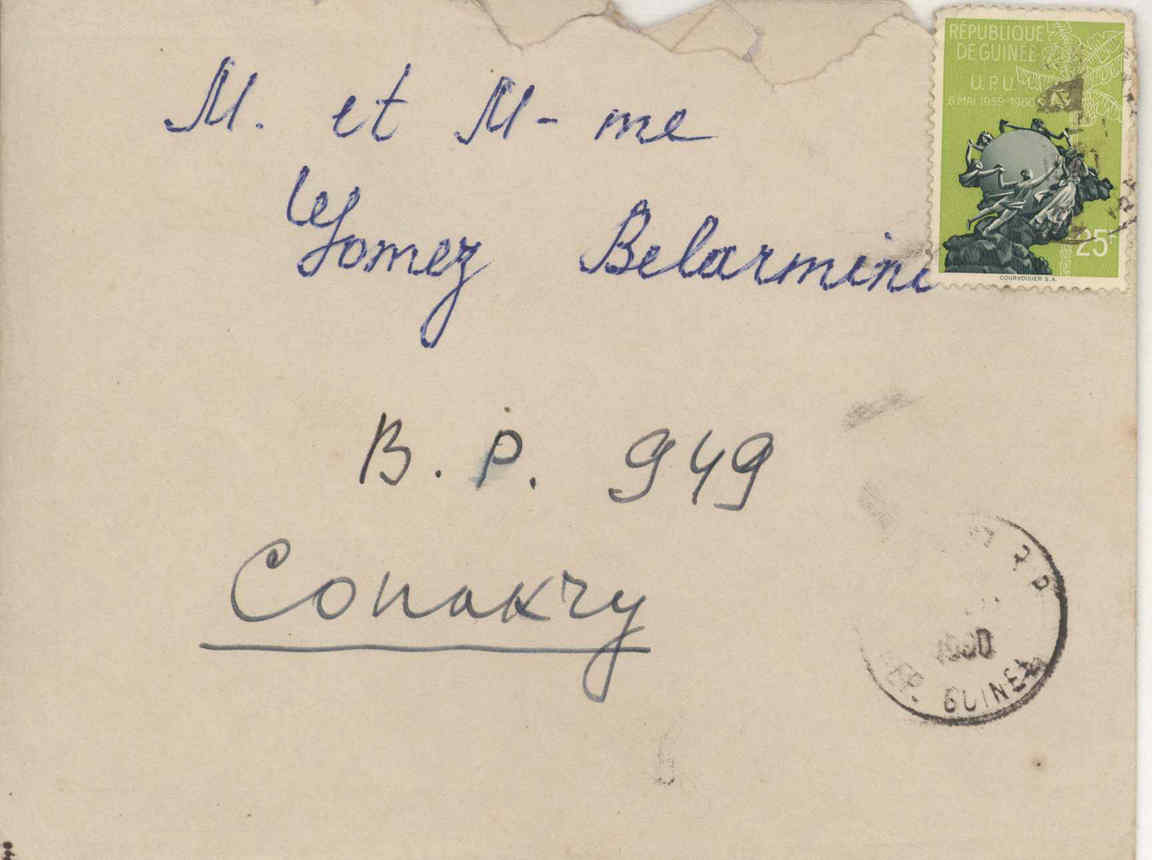 RÉPUBLIQUE
DE GUINÉE
U.P.U.
6 MAI 1959-1960
25F
COURVOISIER S.A.
M. et M-me
Gomez Belarmini
B. P. 949
Conakry
R P
1960
REP. GUINEE